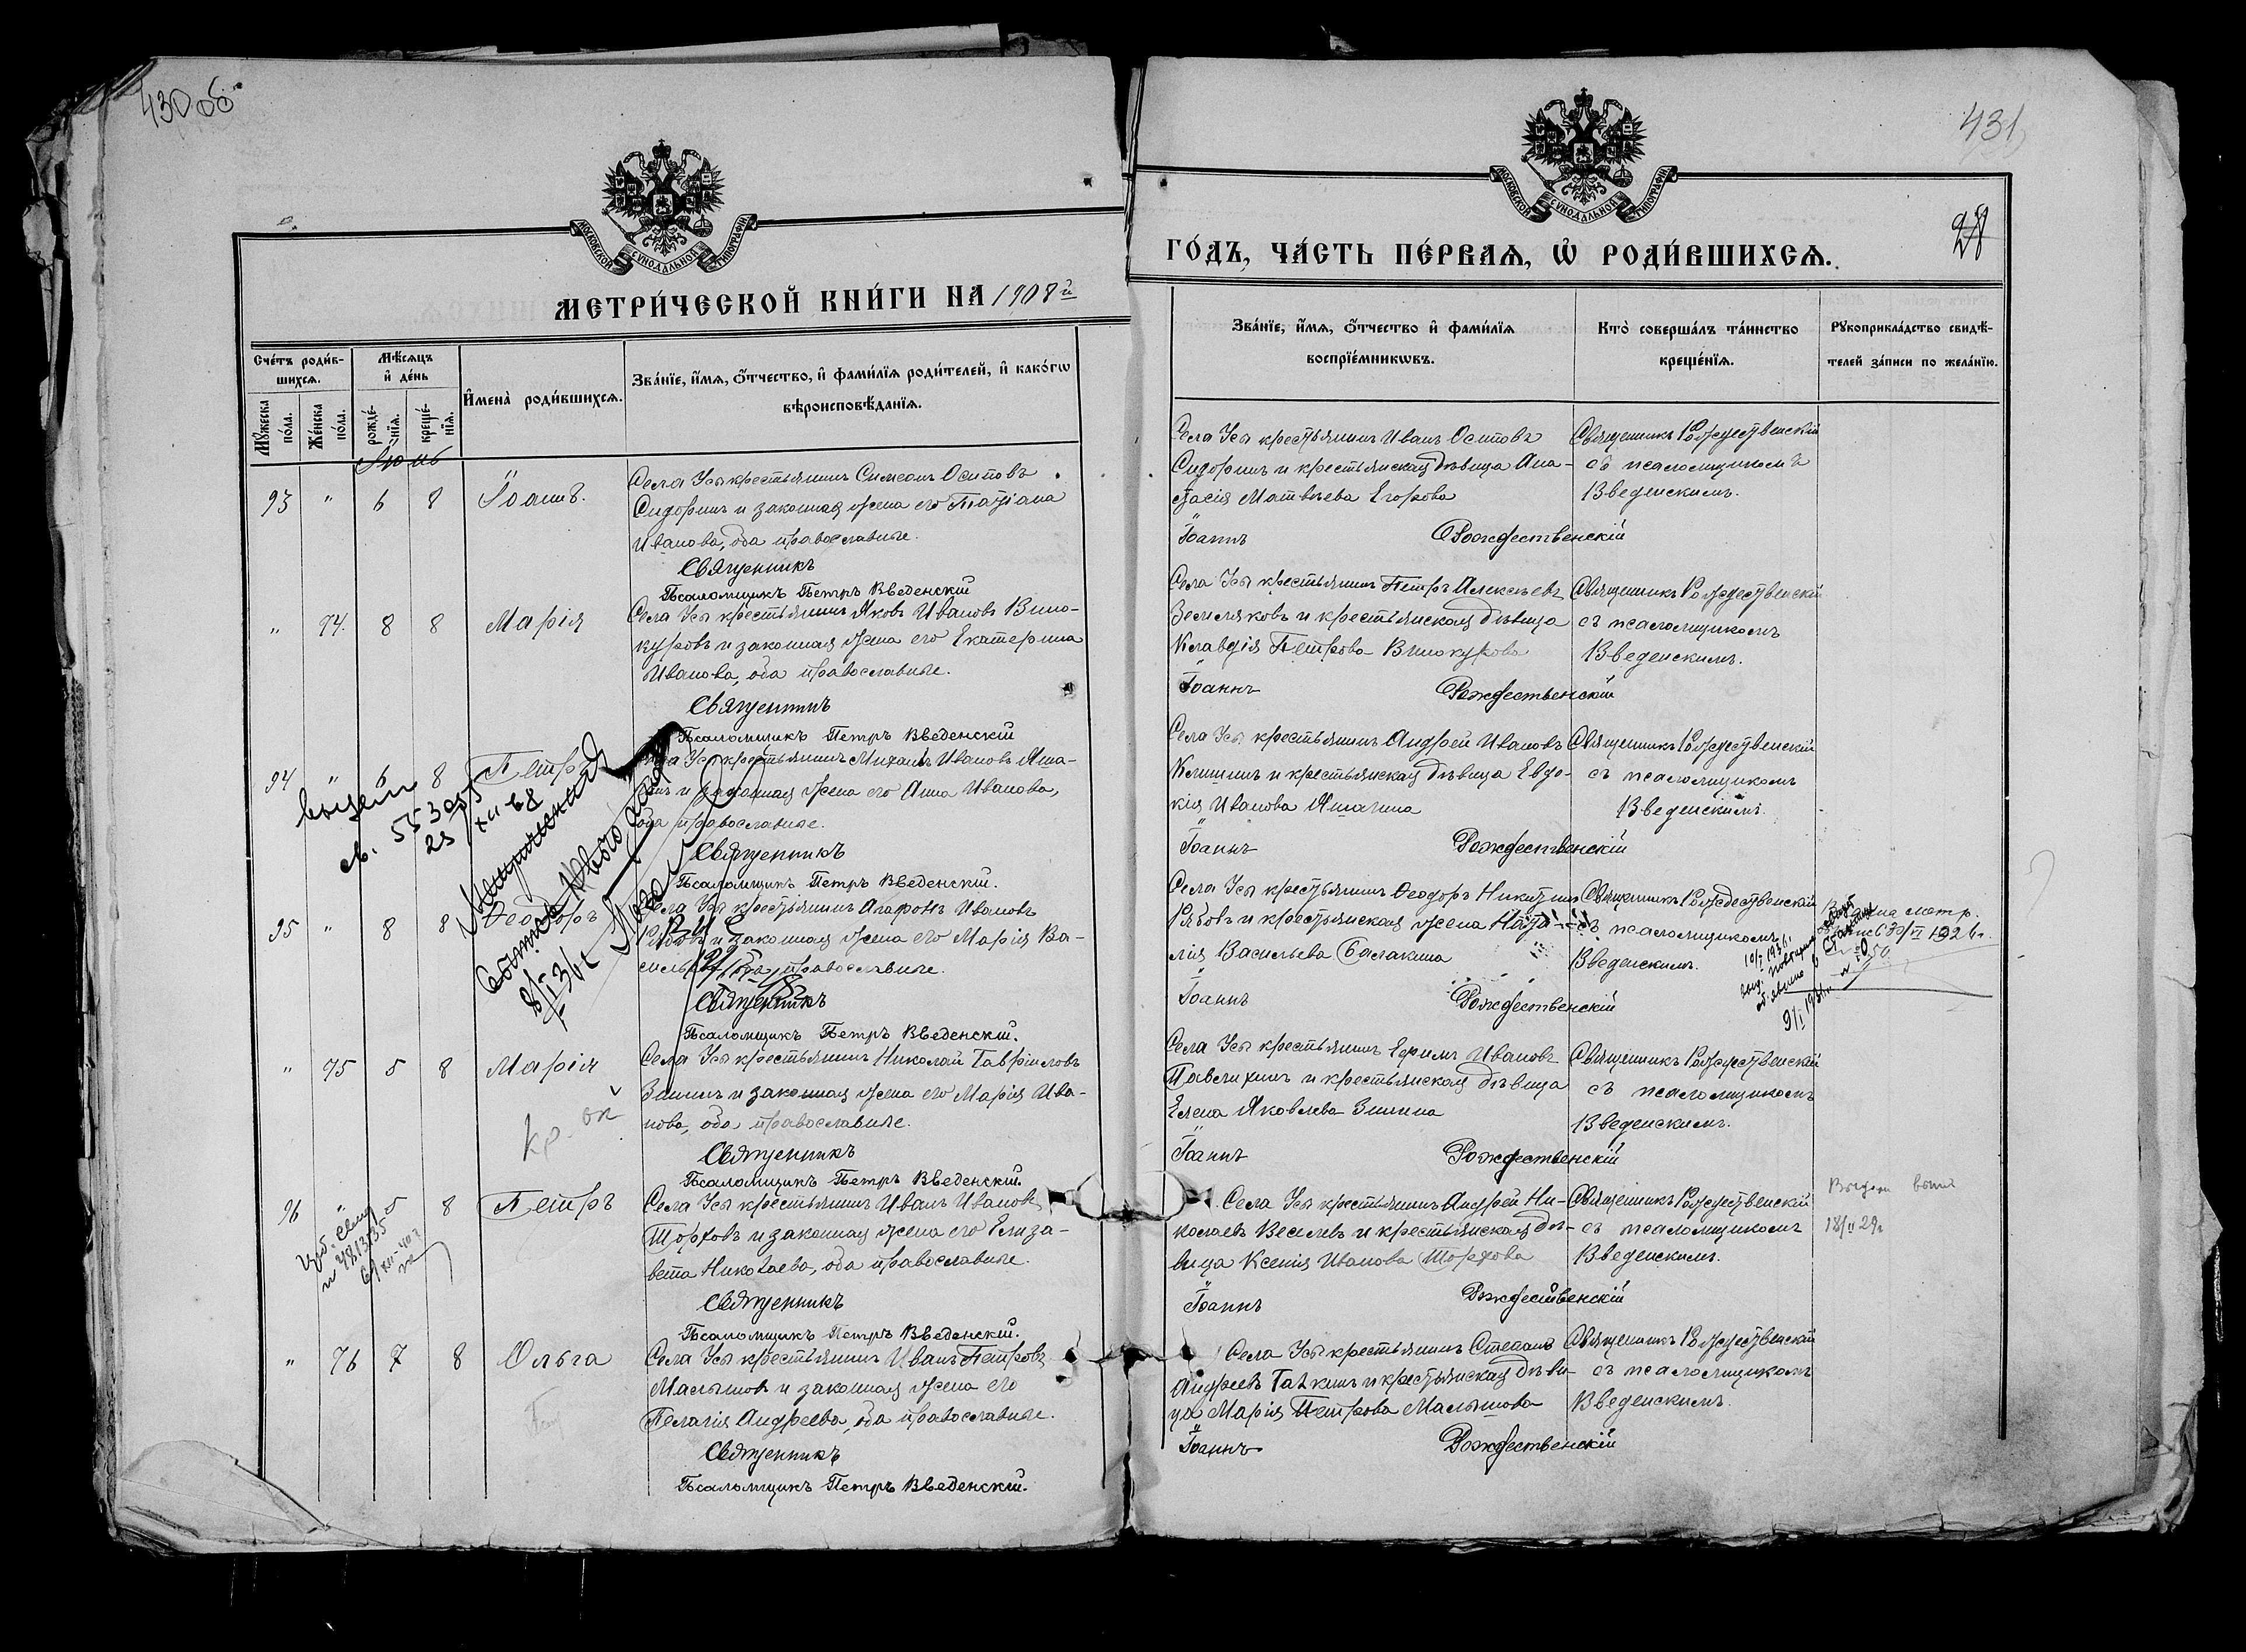 430 об
МОСКОВСКОЙ СѴНОДАЛЬНОЙ ТИПОГРАФІИ
МЕТРИ́ЧЕСКОЙ КНИ́ГИ НА 1908й
Сче́тъ роди́в-
шихсѧ.
Мѣ́сѧцъ
и҆ де́нь
И҆мена̀ роди́вшихсѧ.
Зва́нїе, и҆́мѧ, ѻ҆́тчество, и҆ фами́лїѧ роди́телей, и҆ како́гѡ
вѣроисповѣ́данїѧ.
Мꙋ́жеска
по́ла.
Же́нска
по́ла.
рожде́-
нїѧ.
креще́-
нїѧ.
Іюнь
93 " 6 8 Іоаннъ.
Села Усы крестьянинъ Симеонъ Осиповъ
Сидоринъ и законная жена его Татіана
Иванова, оба православные.
Священникъ
Псаломщикъ Петръ Введенскій
" 74. 8 8 Марія
Села Усы крестьянинъ Яковъ Ивановъ Вино-
куровъ и законная жена его Екатерина
Иванова, оба православные.
Священникъ
Псаломщикъ Петръ Введенскій
94 " 6 8 Петръ
Села Усы крестьянинъ Михаилъ Ивановъ Яша-
и законная жена его Анна Иванова,
оба православные.
Священникъ
Псаломщикъ Петръ Введенскій.
95 " 8 8 Ѳеодоръ
Села Усы крестьянинъ Агафонъ Ивановъ
Рябовъ и законная жена его Марія Ва-
сильева, оба православные.
Священникъ
Псаломщикъ Петръ Введенскій.
" 75 5 8 Марія
Села Усы крестьянинъ Николай Гавріиловъ
Зининъ и законная жена его Марія Ива-
нова, оба православные.
Священникъ
Псаломщикъ Петръ Введенскій.
96 " 5 8 Петръ
Села Усы крестьянинъ Иванъ Ивановъ
Шорховъ и законная жена его Елиза-
вета Николаева, оба православные.
Священникъ
Псаломщикъ Петръ Введенскій.
" 76 7 8 Ольга
Села Усы крестьянинъ Иванъ Петровъ
Малышовъ и законная жена его
Пелагія Андреева, оба православные.
Священникъ
Псаломщикъ Петръ Введенскій.
431
МОСКОВСКОЙ СѴНОДАЛЬНОЙ ТИПОГРАФІИ
28
ГО́ДЪ, ЧА́СТЬ ПЕ́РВАѦ, Ѡ҆ РОДИ́ВШИХСѦ.
Зва́нїе, и҆́мѧ, ѻ҆́тчество и҆ фами́лїѧ
воспрїе́мникѡвъ.
Кто̀ соверша́лъ та́инство
креще́нїѧ.
Рꙋкоприкла́дство свидѣ́-
телей за́писи по жела́нїю.
Села Усы крестьянинъ Иванъ Осиповъ
Сидоринъ и крестьянская дѣвица Ана-
стасія Матвѣева Егорова
Священникъ Рождественскій
съ псаломщикомъ
Введенскимъ.
Іоаннъ Рождественскій
Села Усы крестьянинъ Петръ Алексѣевъ
Земляковъ и крестьянская дѣвица
Клавдія Петрова Винокурова
Священникъ Рождественскій
съ псаломщикомъ
Введенскимъ.
Іоаннъ Рождественскій
Села Усы крестьянинъ Андрей Ивановъ
Клишинъ и крестьянская дѣвица Евдо-
кія Иванова Яшагина
Священникъ Рождественскій
съ псаломщикомъ
Введенскимъ.
Іоаннъ Рождественскій
Села Усы крестьянинъ Ѳеодоръ Никитинъ
Рябовъ и крестьянская жена Ната-
лія Васильева Балакина
Священникъ Рождественскій
съ псаломщикомъ
Введенскимъ.
Іоаннъ Рождественскій
Села Усы крестьянинъ Ефимъ Ивановъ
Павлихинъ и крестьянская дѣвица
Елена Яковлева Зинина
Священникъ Рождественскій
съ псаломщикомъ
Введенскимъ.
Іоаннъ Рождественскій
Села Усы крестьянинъ Андрей Ни-
колаевъ Веселевъ и крестьянская дѣ-
вица Ксенія Иванова Шорхова
Священникъ Рождественскій
съ псаломщикомъ
Введенскимъ.
18/II 29г
Іоаннъ Рождественскій
Села Усы крестьянинъ Стефанъ
Андреевъ Галкинъ и крестьянская дѣви-
ца Марія Петрова Малышова
Священникъ Рождественскій
съ псаломщикомъ
Введенскимъ.
Іоаннъ Рождественскій